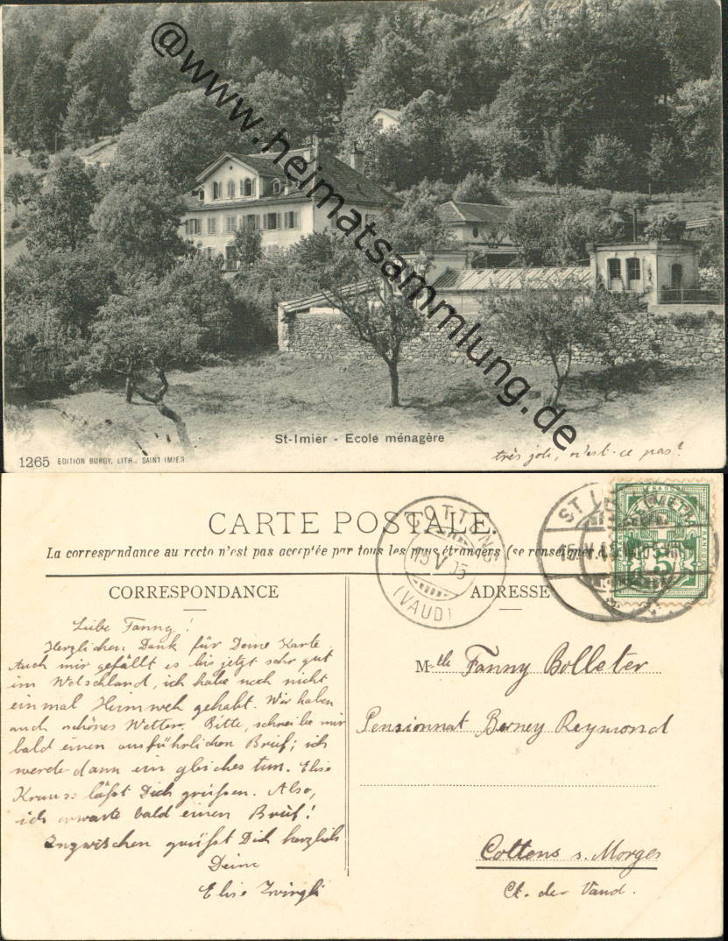 @www.heimatsammlung.de
St-Imier - Ecole ménagère
1265 EDITION BURGY, LITH., SAINT-IMIER
très joli, n'est-ce pas?
CARTE POSTALE
La correspondance au recto n'est pas acceptée par tous les pays étrangers (se renseigner
CORRESPONDANCE
ADRESSE
COTTENS
15 V 05
(VAUD)
ST IMIER
5
Liebe Fanny!
Herzlichen Dank für Deine Karte
Auch mir gefällt es bis jetzt sehr gut
im Welschland, ich habe noch nicht
einmal Heimweh gehabt. Wir haben
auch schönes Wetter. Bitte, schreibe mir
bald einen ausführlichen Brief; ich
werde dann ein gleiches tun. Elise
Kraus läßt Dich grüssen. Also,
ich erwarte bald einen Brief!
Inzwischen grüßt Dich herzlich
Deine
Elise Zwingli
Mlle Fanny Bolleter
Pensionnat Berney Reymond
Cottens s. Morges
Ct. de Vaud.